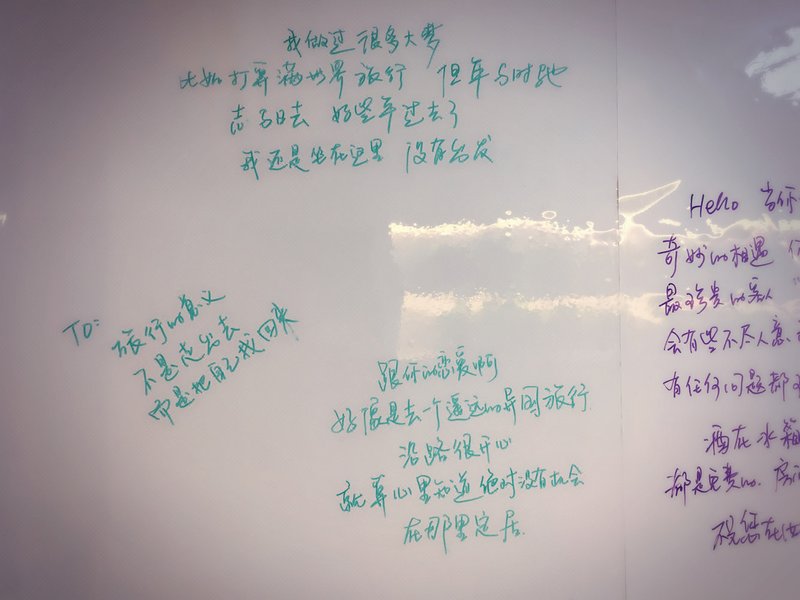 我做过很多大梦
比如打算满世界旅行 但年与时驰
志与日去 好些年过去了
我还是坐在这里 没有出发
TO:
旅行的意义
不是走出去
而是把自己找回来
跟你的恋爱啊
好像是去一个遥远的异国旅行
沿路很开心
就算心里知道绝对没有机会
在那里定居.
Hello 当你
奇妙的相遇
最珍贵的客人
会有些不尽人意.
有任何问题都
酒在冰箱
都是免费的. 房间
祝您在